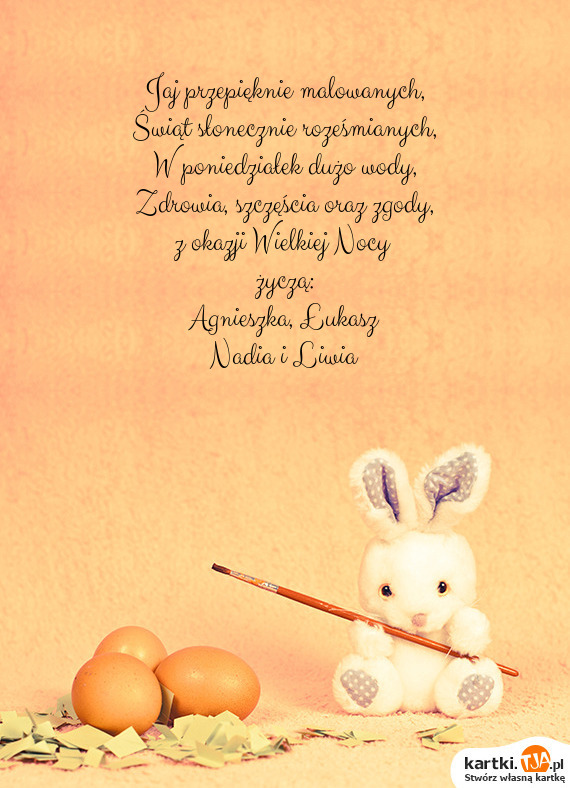 Jaj przepięknie malowanych,
Świąt słonecznie roześmianych,
W poniedziałek dużo wody,
Zdrowia, szczęścia oraz zgody,
z okazji Wielkiej Nocy
życzą:
Agnieszka, Łukasz
Nadia i Liwia
kartki.TJA.pl
Stwórz własną kartkę